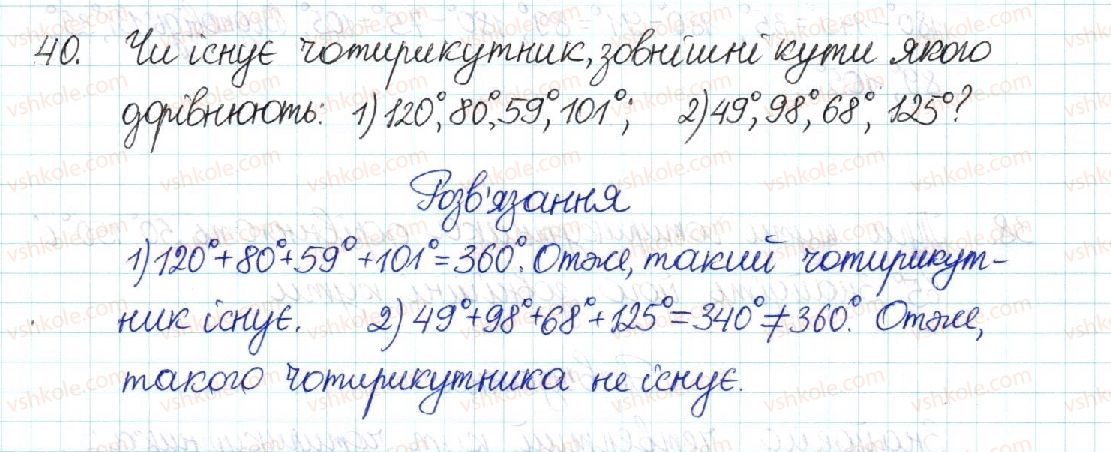 40. Чи існує чотирикутник, зовнішні кути якого
дорівнюють: 1) 120°, 80°, 59°, 101°; 2) 49°, 98°, 68°, 125°?
Розв'язання
1) 120° + 80° + 59° + 101° = 360°. Отже, такий чотирикут-
ник існує. 2) 49° + 98° + 68° + 125° = 340° ≠ 360°. Отже,
такого чотирикутника не існує.